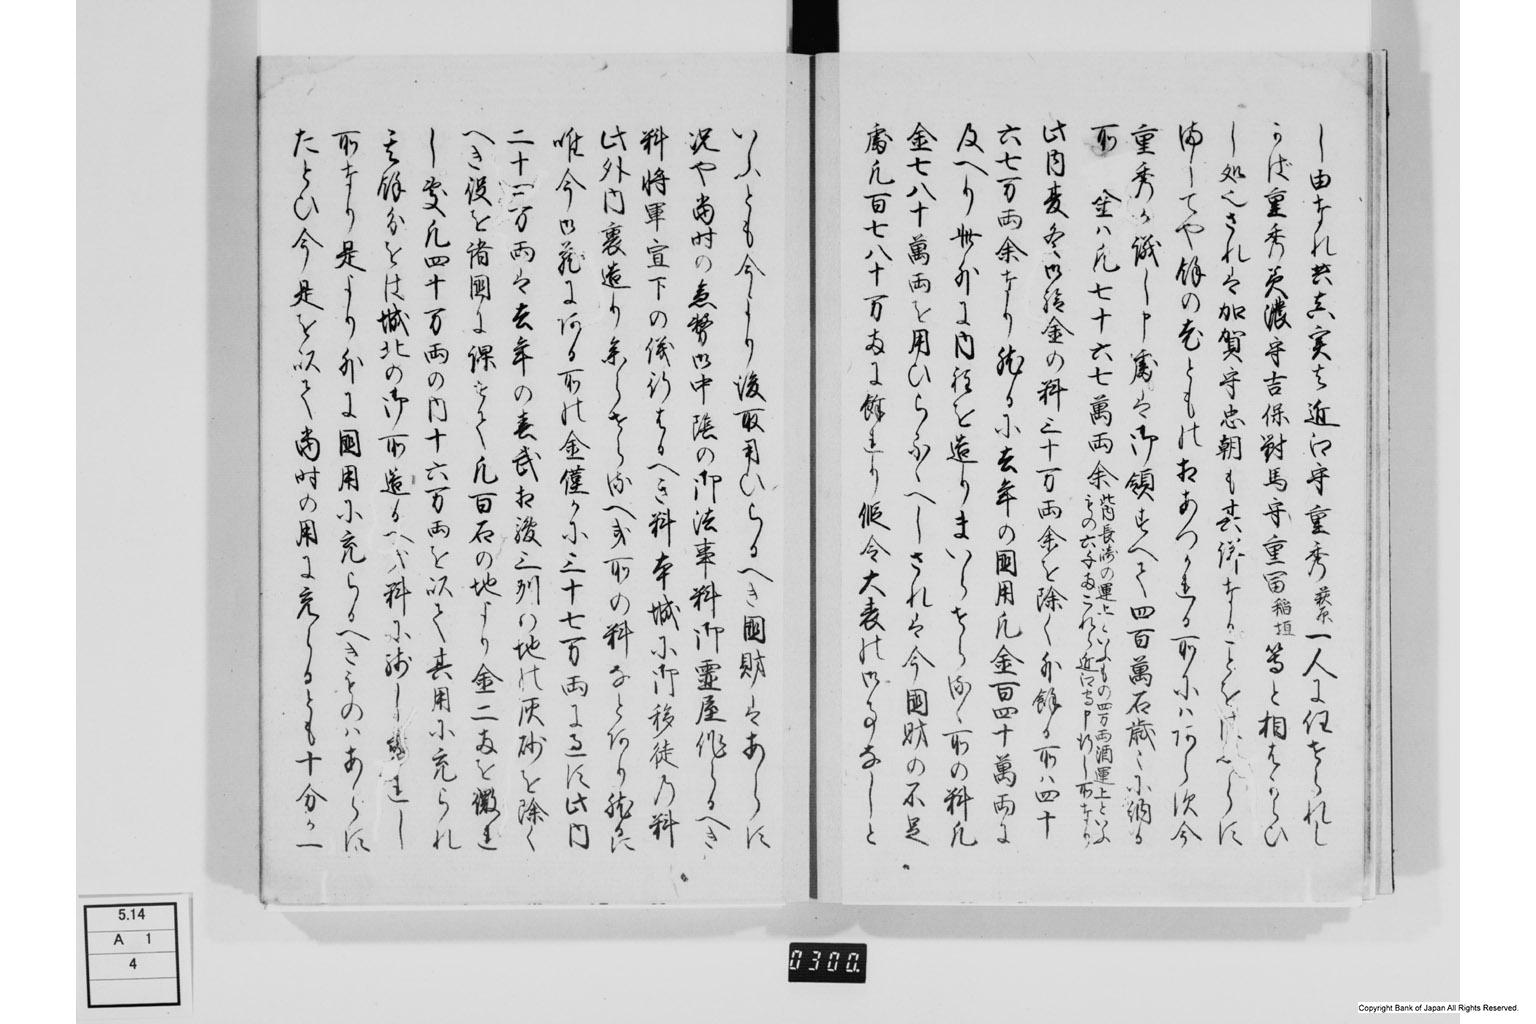 し由なれ共真実は近江守重秀萩原一人に任せられし
かば重秀美濃守吉保対馬守重冨稲垣等と相はからひ
し処也されは加賀守忠朝も其詳なることをはしらす
ましてや餘の老ともは相あつかれる所にハあらす今
重秀か議し申処は御領すへて四百萬石歳々に納る
所金ハ凡七十六七萬両余此内長崎の運上といふもの四万両酒運上といふ
もの六千両これら近江守申行し所なり
此内夏冬御給金の料三十万両余を除く外餘る所ハ四十
六七万両余なり然るに去年の国用凡金百四十萬両に
及へり此外に内裏を造りまいらせらるゝ所の料凡
金七八十萬両を用ひらるへしされは今国財の不足
處凡百七八十万両に餘れり仮令大喪の御事なしと
いふとも今より後取用ひらるへき国財はあらす
況や当時の急務御中陰の御法事料御霊屋作らるへき
料将軍宣下の儀行はるへき料本城に御移徙の料
此外内裏造り参らせらるへき所の料なとあり然るに
唯今御蔵にある所の金僅かに三十七万両に過す此内
二十四万両は去年の春武相駿三列の地の灰砂を除く
へき役を諸国に課せて凡百石の地より金二両を徴れ
し処凡四十万両の内十六万両を以て其用に充られ
其餘分をは城北の御所造るへき料に残し置れし
所なり是より外に国用に充らるへきものハあらす
たとひ今是を以て当時の用に充らるとも十分か一
5.14
A 1
4
0300.
Copyright Bank of Japan All Rights Reserved.